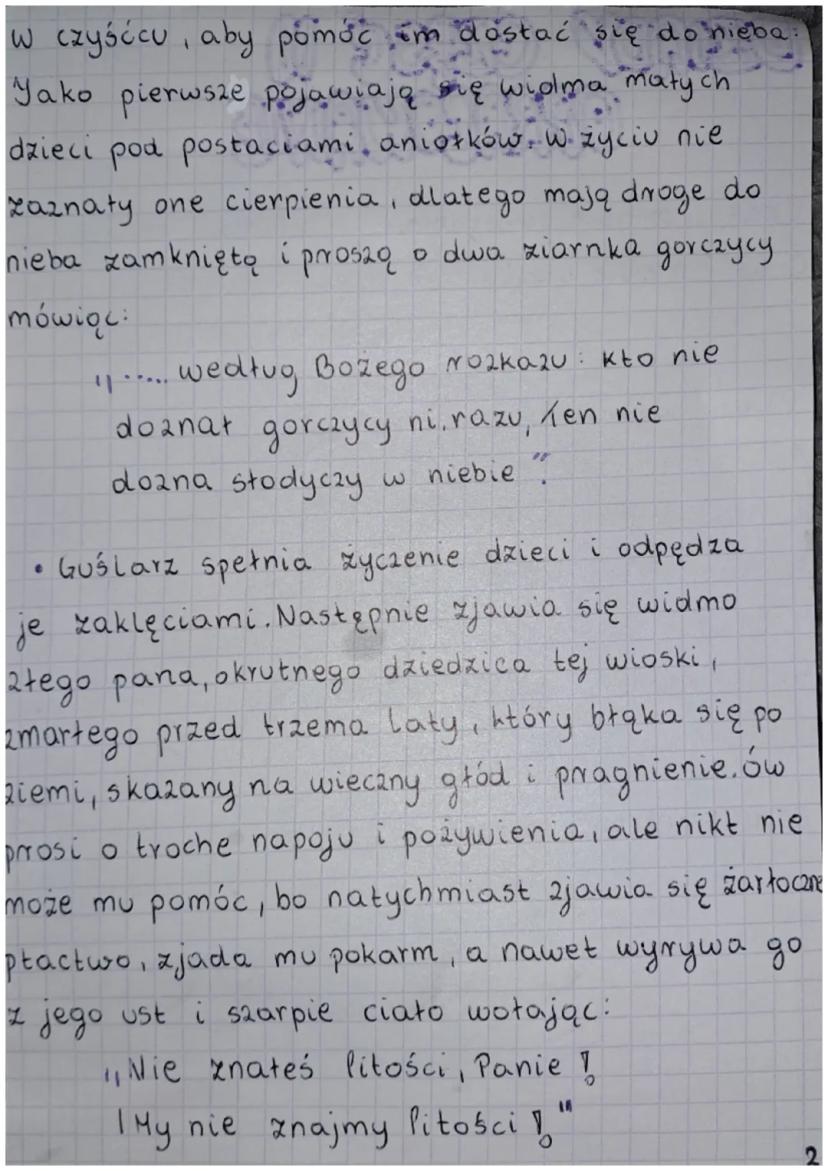 w czyśćcu, aby pomóc im dostać się do nieba.
Jako pierwsze pojawiają się widma małych
dzieci pod postaciami aniołków. w życiu nie
zaznały one cierpienia, dlatego mają droge do
nieba zamkniętą i proszą o dwa ziarnka gorczycy
mówiąc:
"..... według Bożego rozkazu: kto nie
doznał gorczycy ni razu, Ten nie
dozna słodyczy w niebie".
• Guślarz spełnia życzenie dzieci i odpędza
je zaklęciami. Następnie zjawia się widmo
złego pana, okrutnego dziedzica tej wioski,
zmarłego przed trzema laty, który błąka się po
ziemi, skazany na wieczny głód i pragnienie. Ów
prosi o troche napoju i pożywienia, ale nikt nie
może mu pomóc, bo natychmiast zjawia się żarłoczne
ptactwo, zjada mu pokarm, a nawet wyrywa go
z jego ust i szarpie ciało wołając:
"Nie znałeś litości, Panie!
I My nie znajmy litości!"
2